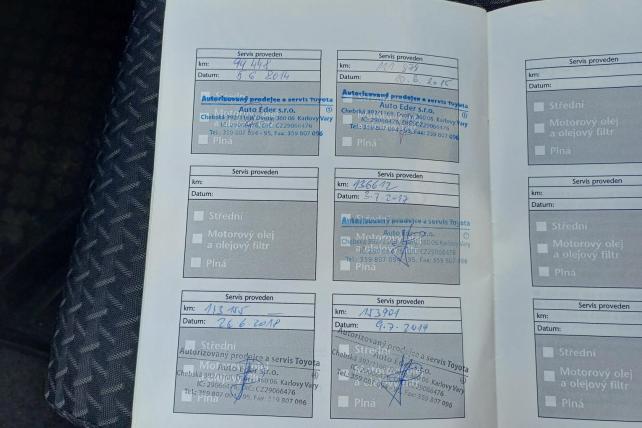 Servis proveden
km: 94 448
Datum: 5 6 2014
Autorizovaný prodejce a servis Toyota
Auto Eder s.r.o.
Chebská 392/116B, Dvory, 360 06 Karlovy Vary
IČ: 29066476, DIČ: CZ29066476
Tel.: 359 807 094 - 95, Fax: 359 807 096
Plná
Servis proveden
km:
Datum: 2015
Autorizovaný prodejce a servis Toyota
Auto Eder s.r.o.
Chebská 392/116B, Dvory, 360 06 Karlovy Vary
IČ: 29066476, DIČ: CZ29066476
Tel.: 359 807 094 - 95, Fax: 359 807 096
Plná
Servis proveden
km:
Datum:
Střední
Motorový olej
a olejový filtr
Plná
Servis proveden
km: 136612
Datum: 3.7.2017
Autorizovaný prodejce a servis Toyota
Auto Eder s.r.o.
Karlovy Vary
Tel.: 359 807 094 - 95, Fax: 359 807 096
Plná
Servis proveden
km:
Datum: 26 6 2018
Střední
Autorizovaný prodejce a servis Toyota
Auto Eder s.r.o.
Chebská 360 06 Karlovy Vary
IČ: 29066476, DIČ: CZ29066476
Tel.: 359 807 096
Plná
Servis proveden
km: 153901
Datum: 9.7.2019
Střední
Autorizovaný prodejce a servis Toyota
Auto Eder s.r.o.
Chebská 360 06 Karlovy Vary
CZ29066476
Tel.: 359 807 096
Plná
Servis proveden
km:
Datum:
Střední
Motorový olej
a olejový filtr
Plná
Servis proveden
km:
Datum:
Střední
Motorový olej
a olejový filtr
Plná
Servis proveden
km:
Datum:
Střední
Motorový olej
a olejový filtr
Plná